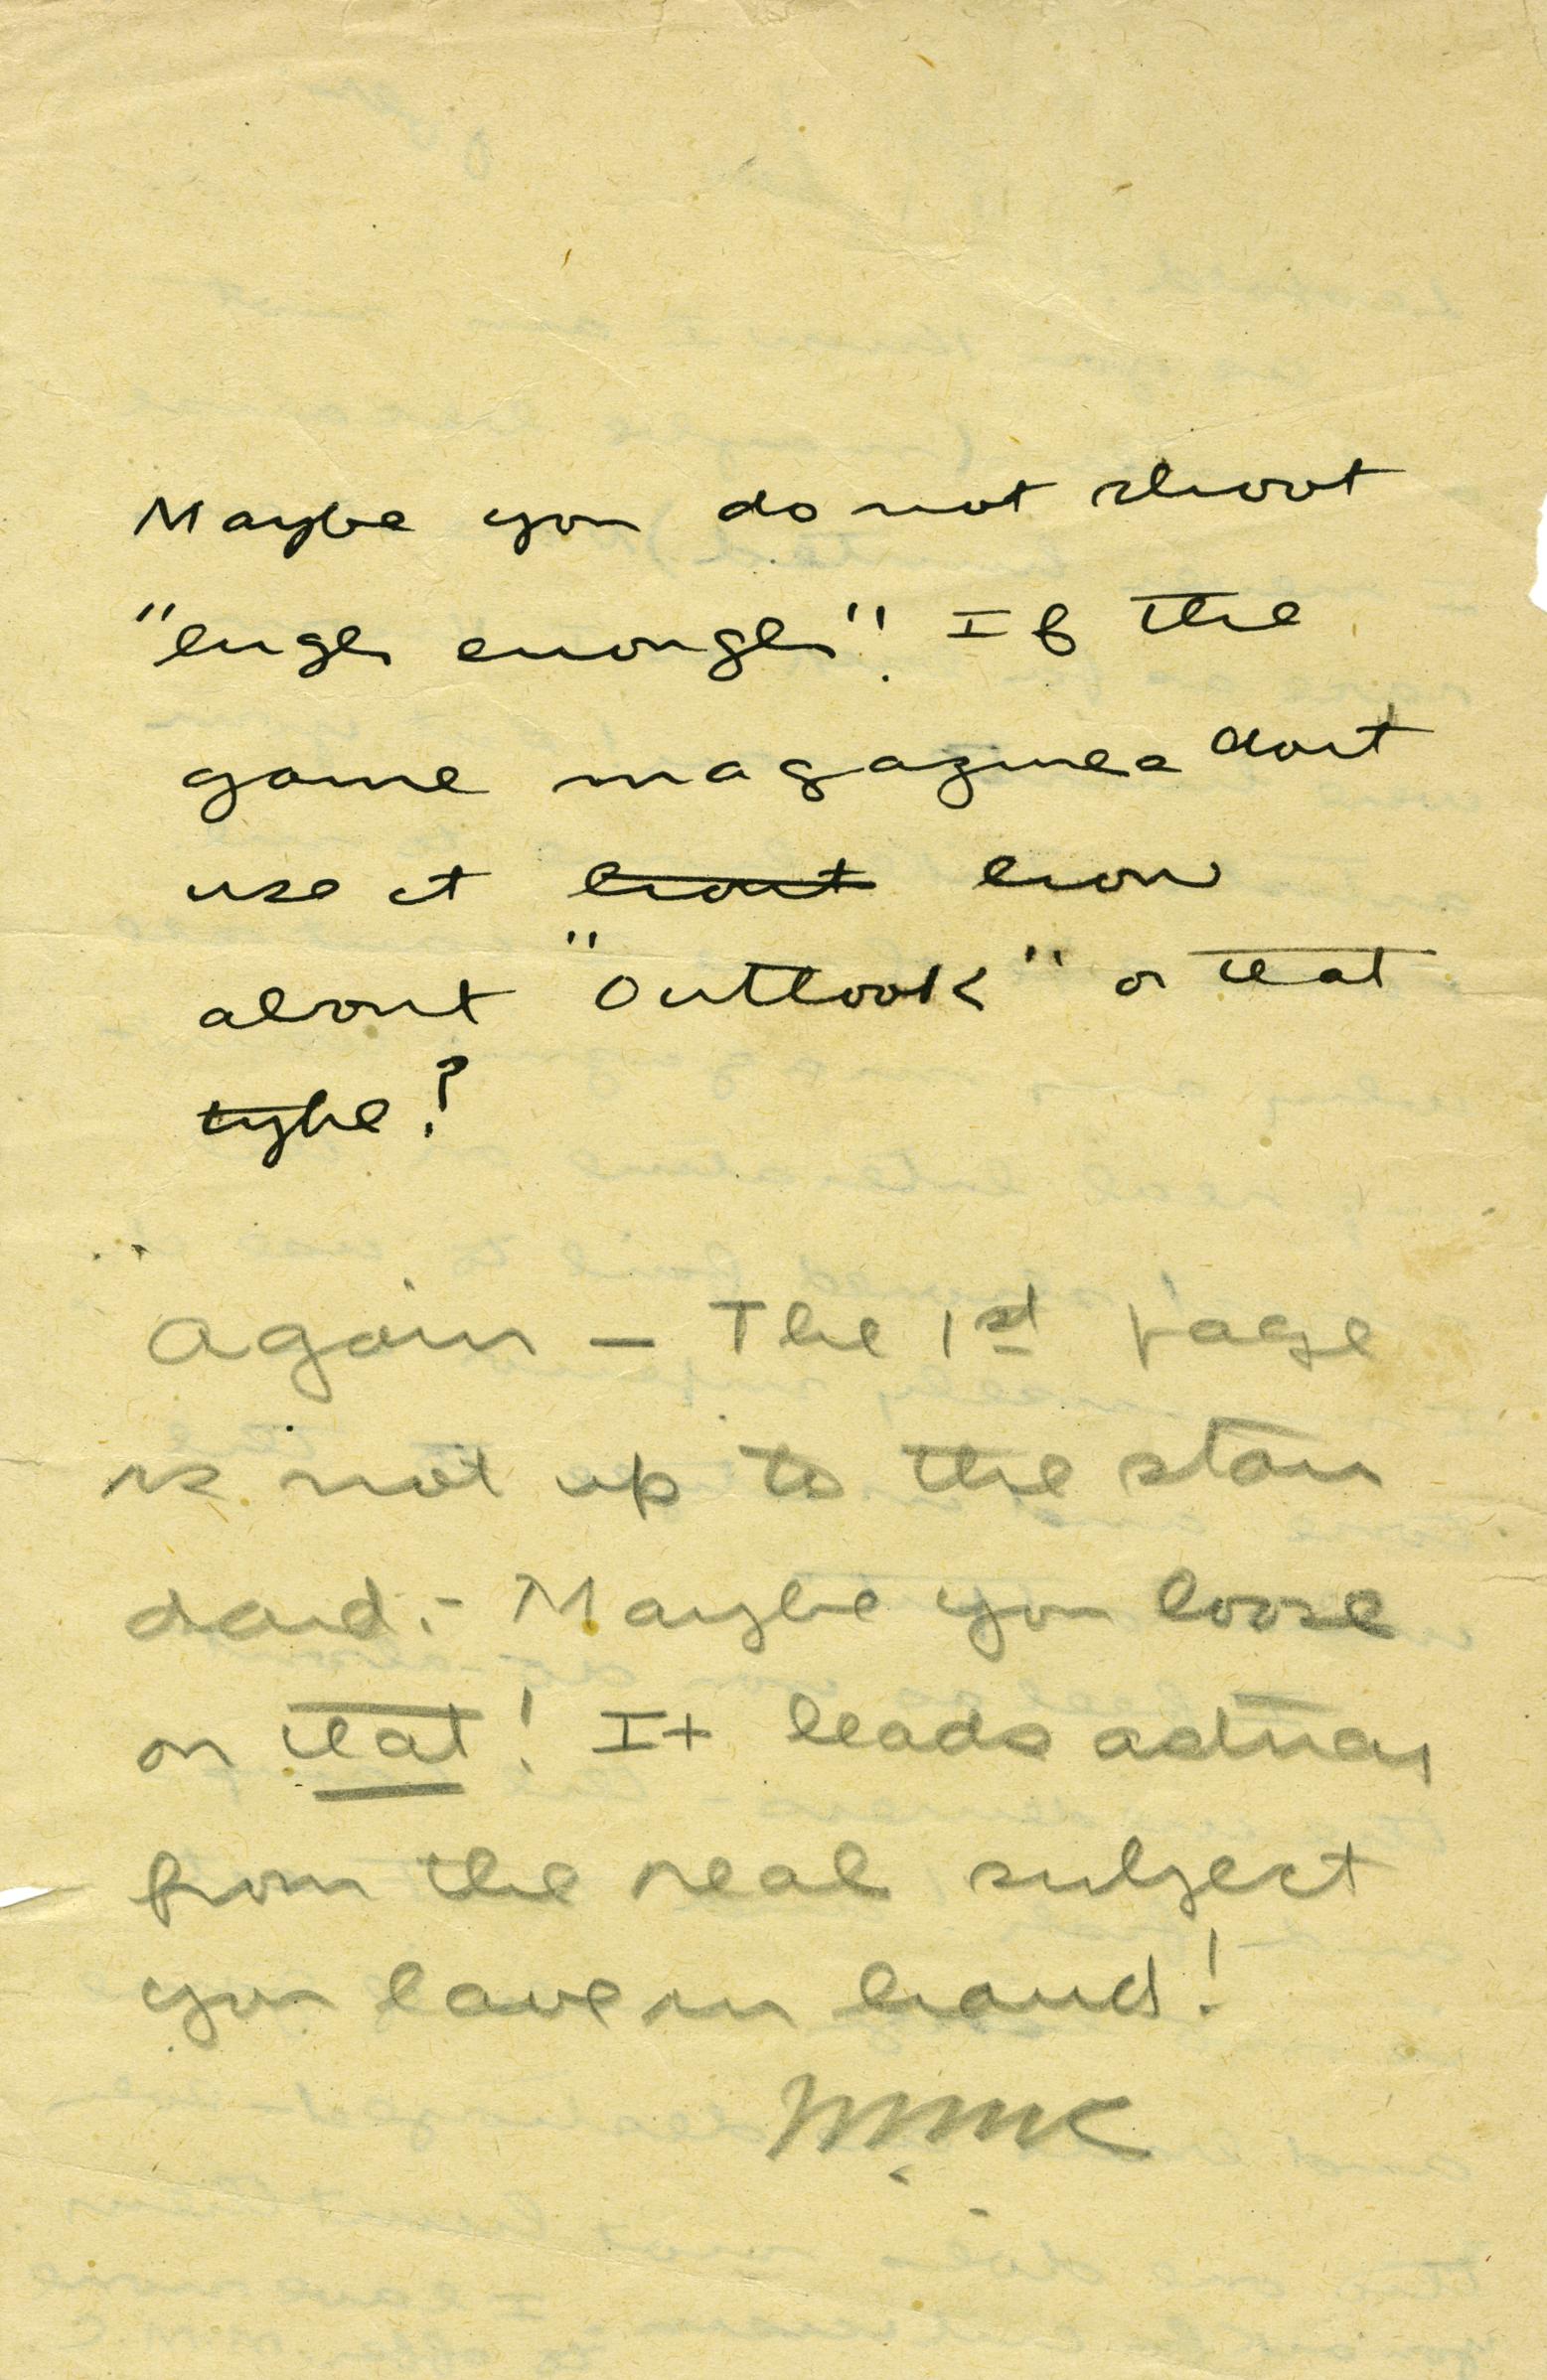 Maybe you do not shoot
"high enough". If the
game magazines dont
use it hout how
about "Outlook" or that
type?
Again — The 1st page
is not up to the stan
dard. - Maybe you loose
on that! It leads astray
from the real subject
you have in hand!